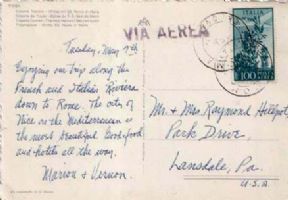 VIA AEREA
Tuesday, May 9th
Enjoying our trip along the
French and Italian Riviera
down to Rome. The city of
Nice on the Mediterranean is
the most beautiful. Good food
and hotels all the way.
Marion & Vernon.
Mr. & Mrs. Raymond
Park Drive,
Lansdale, Pa.
U.S.A.
100